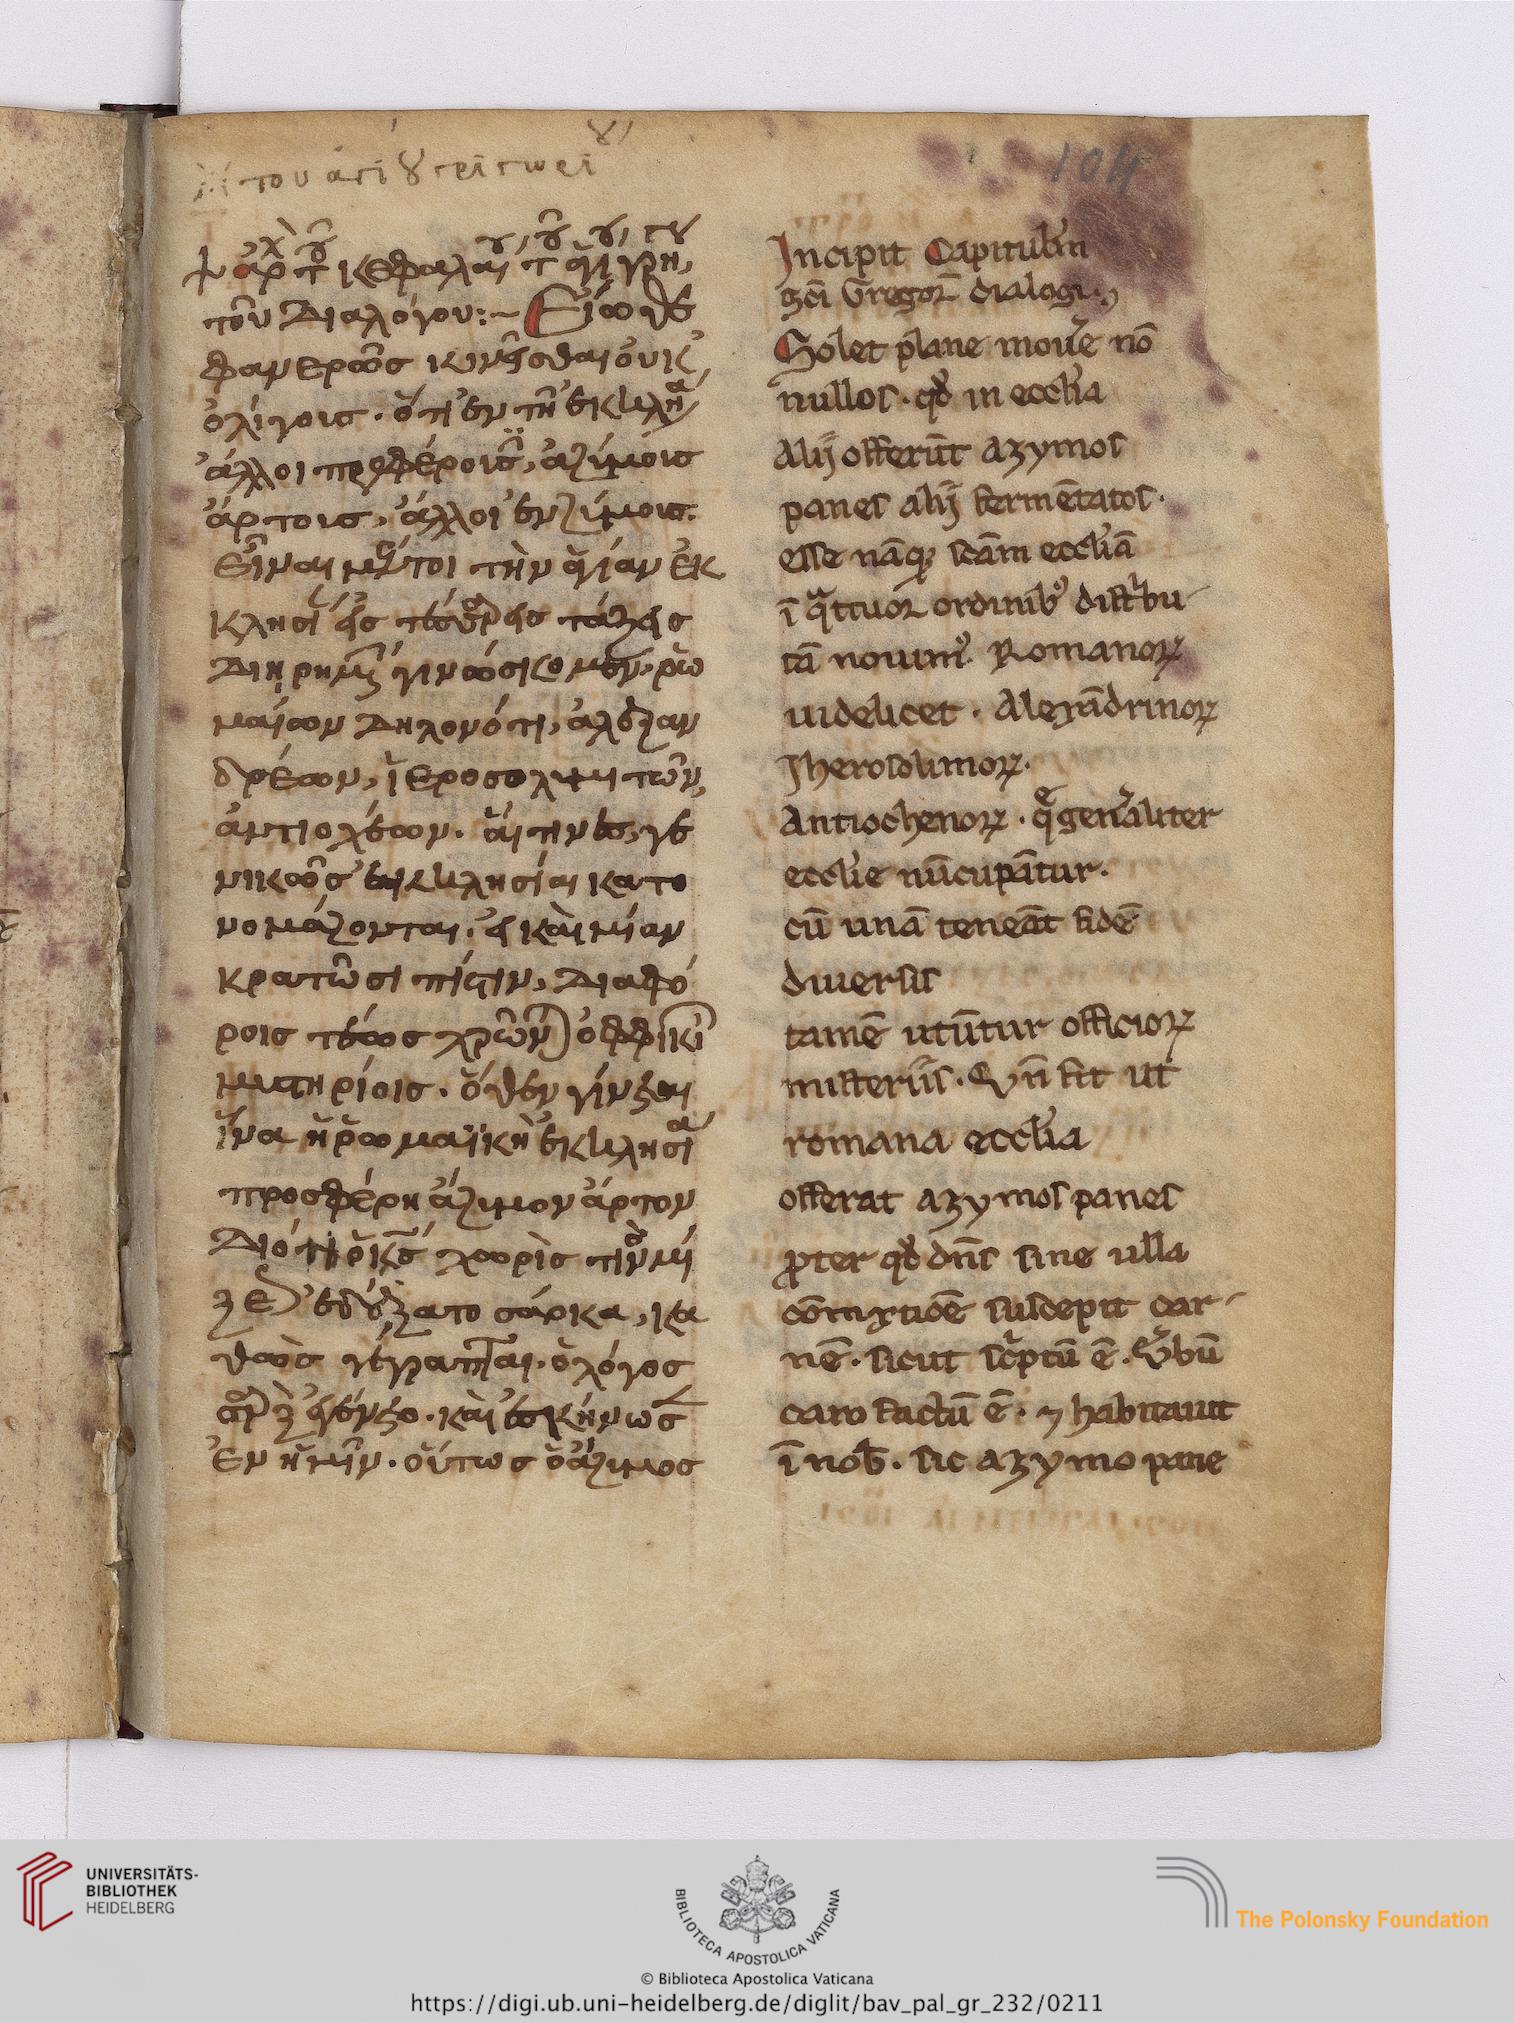 τοῦ ἁγίου γριγωρίου
104
ἀρχ τοῦ κεφαλαίου τοῦ ἁγίου γρηγ
τοῦ Διαλόγου:~ Εἴωθε
φανερῶς κινῆσθαι οὐκ
ὀλίγοις · ὅτι ἐν τῆ ἐκκλη
ἄλλοι προσφέρουσιν, ἀζύμοις
ἄρτοις, ἄλλοι ἐνζύμοις:
Εἶναι μέντοι τὴν ἁγίαν ἐκ
κλησίαν εἰς τέσσαρεις τάξεις
Διηρημένην γινώσκομεν. ῥω
μαίων Δηλονότι, ἀλεξαν
δρέων, ἱεροσολυμιτῶν,
ἀντιοχέων. αἵτινες, γε
νικῶς ἐκκλησίαι κατο
νομάζονται. εἰ καὶ μίαν
κρατῶσι πίστιν, Διαφό
ροις τέως χρῶνται ὀφφικί
μυστηρίοις. ὅθεν γίνεται
ἵνα ἡ ῥωμαϊκὴ ἐκκλησία
προσφέρη ἄζυμον ἄρτον
Διότι ὁ κς χωρὶς τινος μί
ξεως ἐδέξατο σάρκα, κα
θὼς γέγραπται. ὁ λόγος
σὰρξ ἐγένετο. καὶ ἐσκήνωσεν
ἐν ἡμῖν. οὕτως ὁ ἄζυμος
Incipit Capitulum
sci Gregor dialogi.
Solet plane mouere nō
nullos · qd in ecclia
alij offerūt azymos
panes alij fermētatos ·
esse nāq; scām eccliā
ī qattuor ordinibꝰ distribu
tā nouimꝰ. Romanoꝝ
uidelicet · Alexādrinoꝝ
Jherosolimoꝝ.
Antiochenoꝝ · q generaliter
ecclie nūcupātur.
cū unā teneāt fidē
diuersis
tamē utūtur officioꝝ
misteriis · Vn fit ut
romana ecclia
offerat azymos panes
ꝓter qd dns sine ulla
cōmixtioē suscepit car
nē · sicut scptū ē · Verbū
caro factū ē · ⁊ habitauit
ī nob · sic azymo pane
UNIVERSITÄTS-
BIBLIOTHEK
HEIDELBERG
BIBLIOTECA APOSTOLICA VATICANA
The Polonsky Foundation
© Biblioteca Apostolica Vaticana
https://digi.ub.uni-heidelberg.de/diglit/bav_pal_gr_232/0211